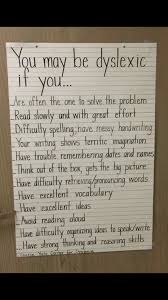 You may be dyslexic
if you...
Are often the one to solve the problem
Read slowly and with great effort
Difficulty spelling, have messy handwriting
Your writing shows terrific imagination
Have trouble remembering dates and names
Think out of the box, gets the big picture
Have difficulty retrieving/pronouncing words
Have excellent vocabulary
Have excellent ideas
Avoid reading aloud
Have difficulty organizing ideas to speak/write
Have strong thinking and reasoning skills